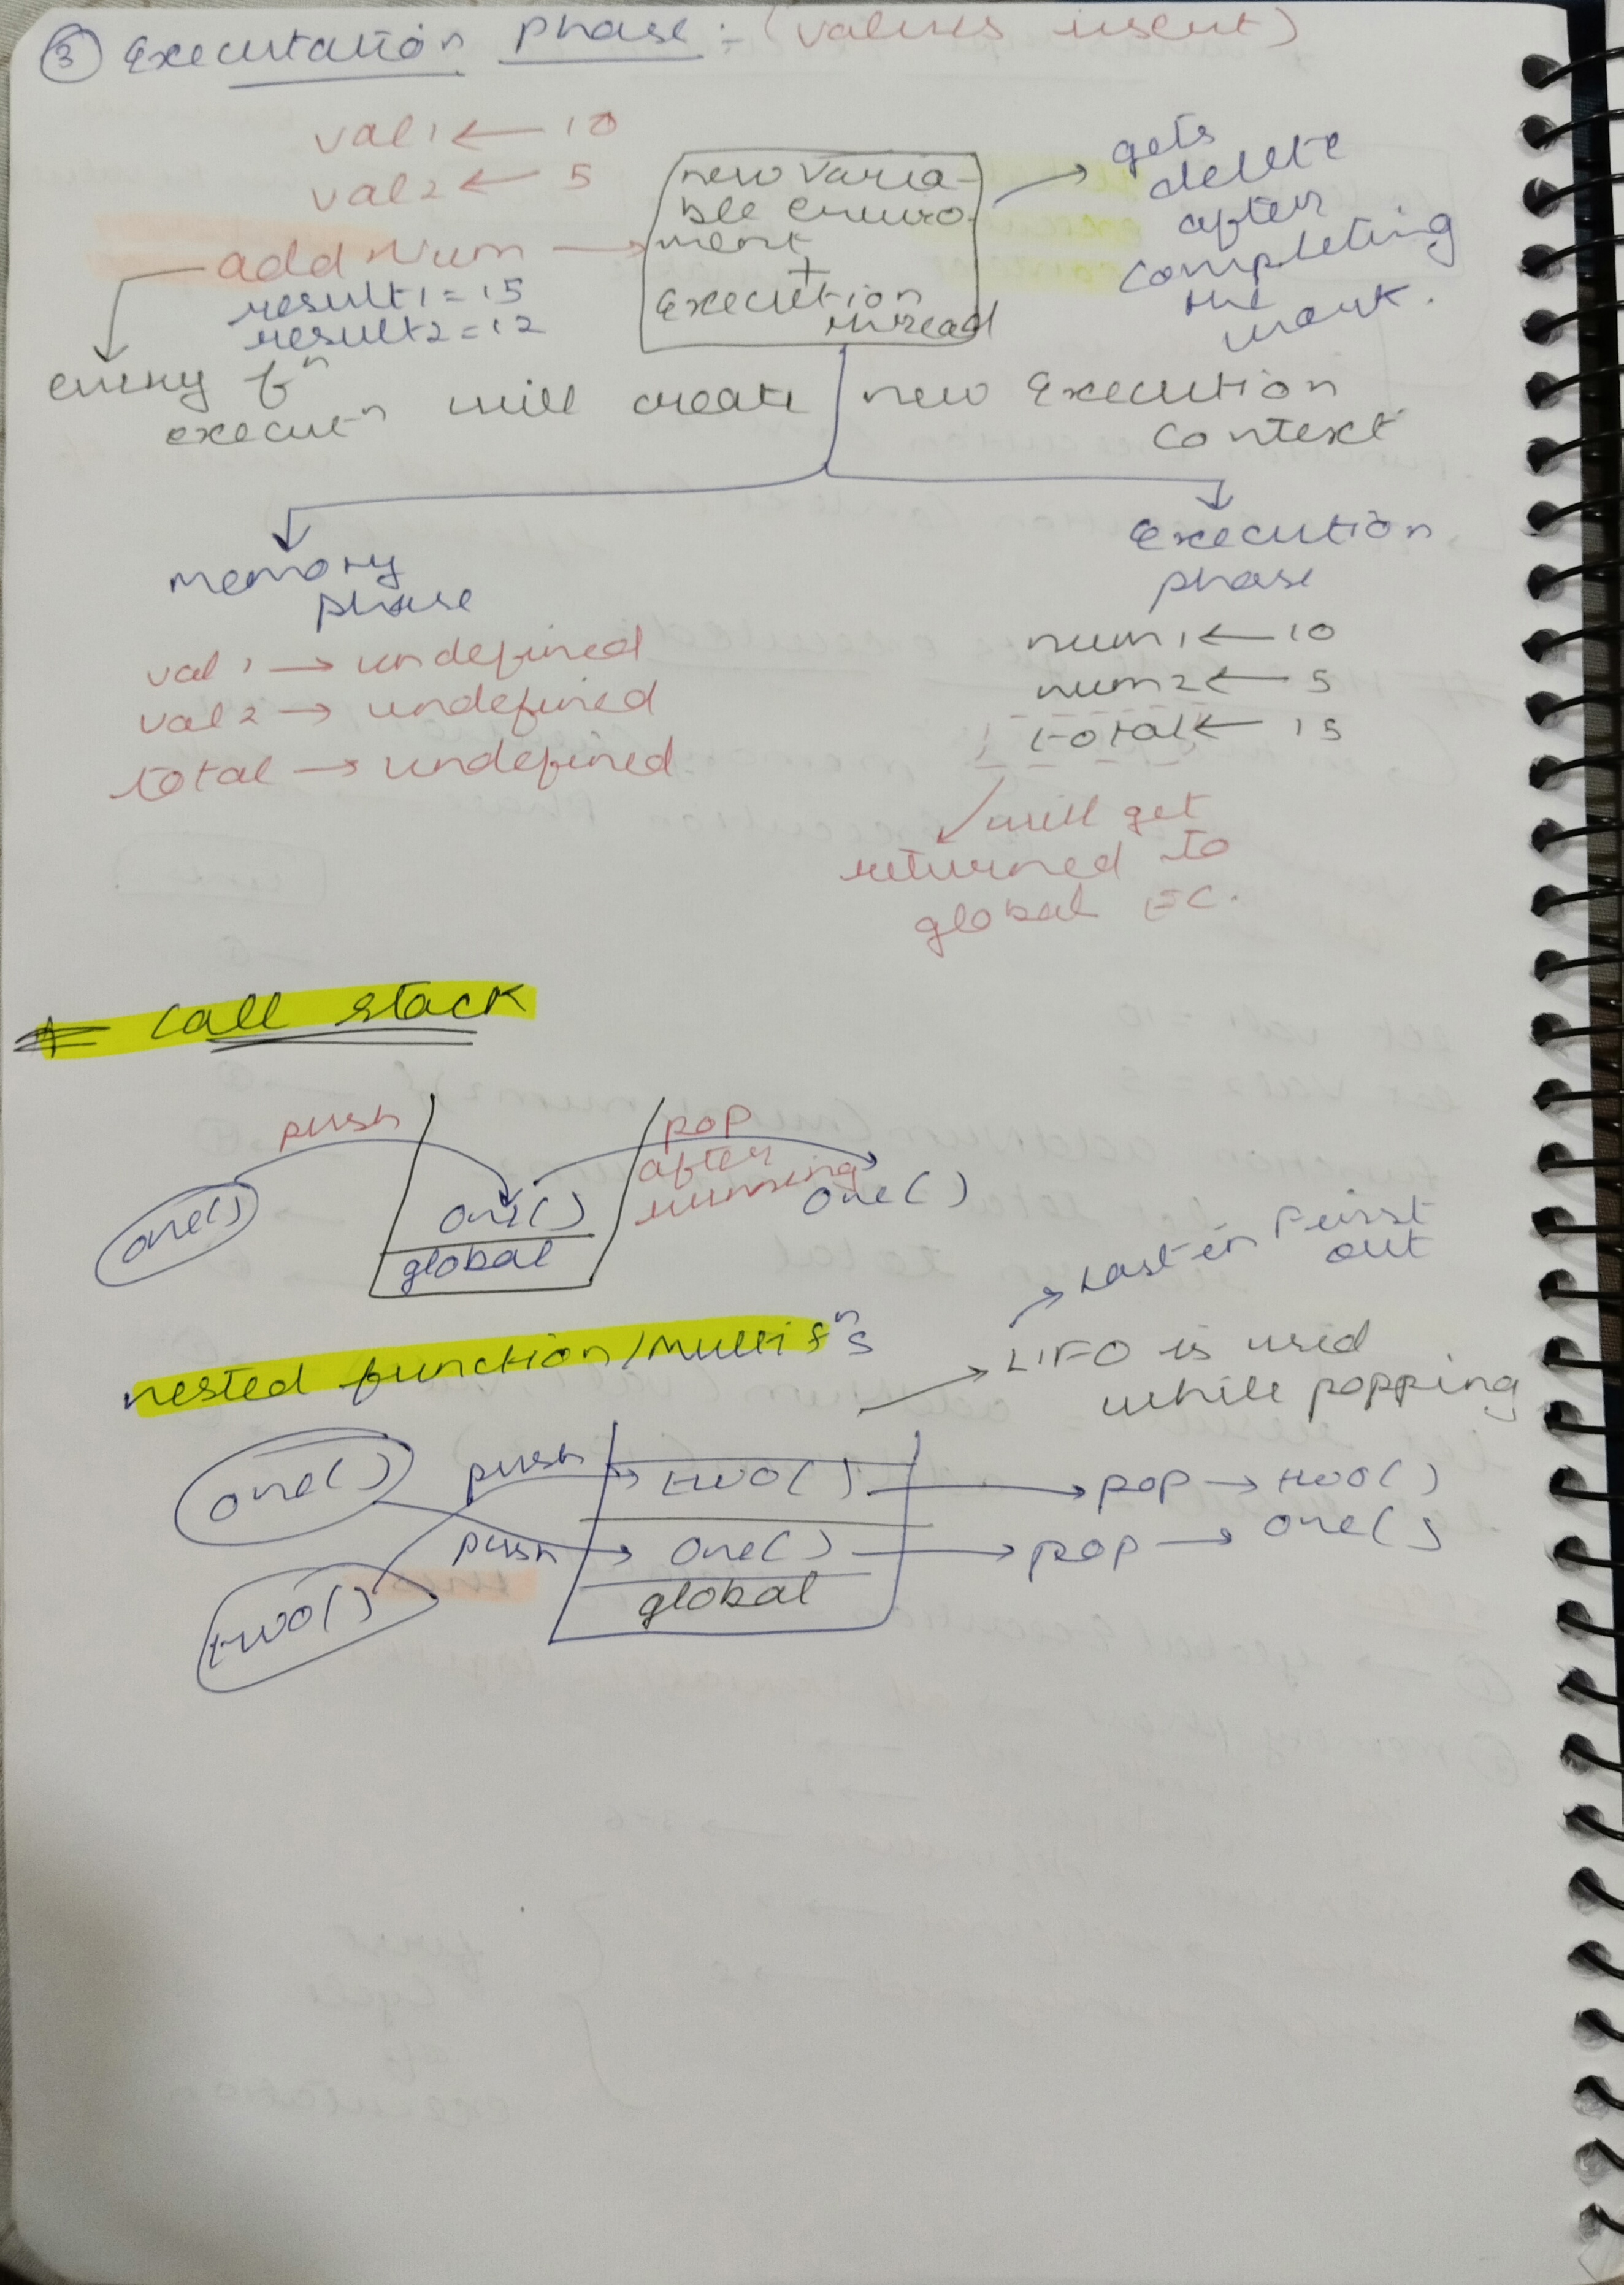 ③ Executation phase :- (values insert)
val1 ← 10
val2 ← 5
addNum →
result1 = 15
result2 = 12
new varia-
ble enviro-
ment
+
Execution
thread
→ gets
delete
after
completing
the
work.
every fⁿ
executⁿ will create new Execution
context
memory
phase
val1 → undefined
val2 → undefined
total → undefined
Execution
phase
num1 ← 10
num2 ← 5
total ← 15
will get
returned to
global EC.
Call stack
push
one()
one()
global
pop
after
running
one()
nested function/multi fⁿs
→ Last in First
out
→ LIFO is used
while popping
one()
push
two() → pop → two()
two()
push
one() → pop → one()
global